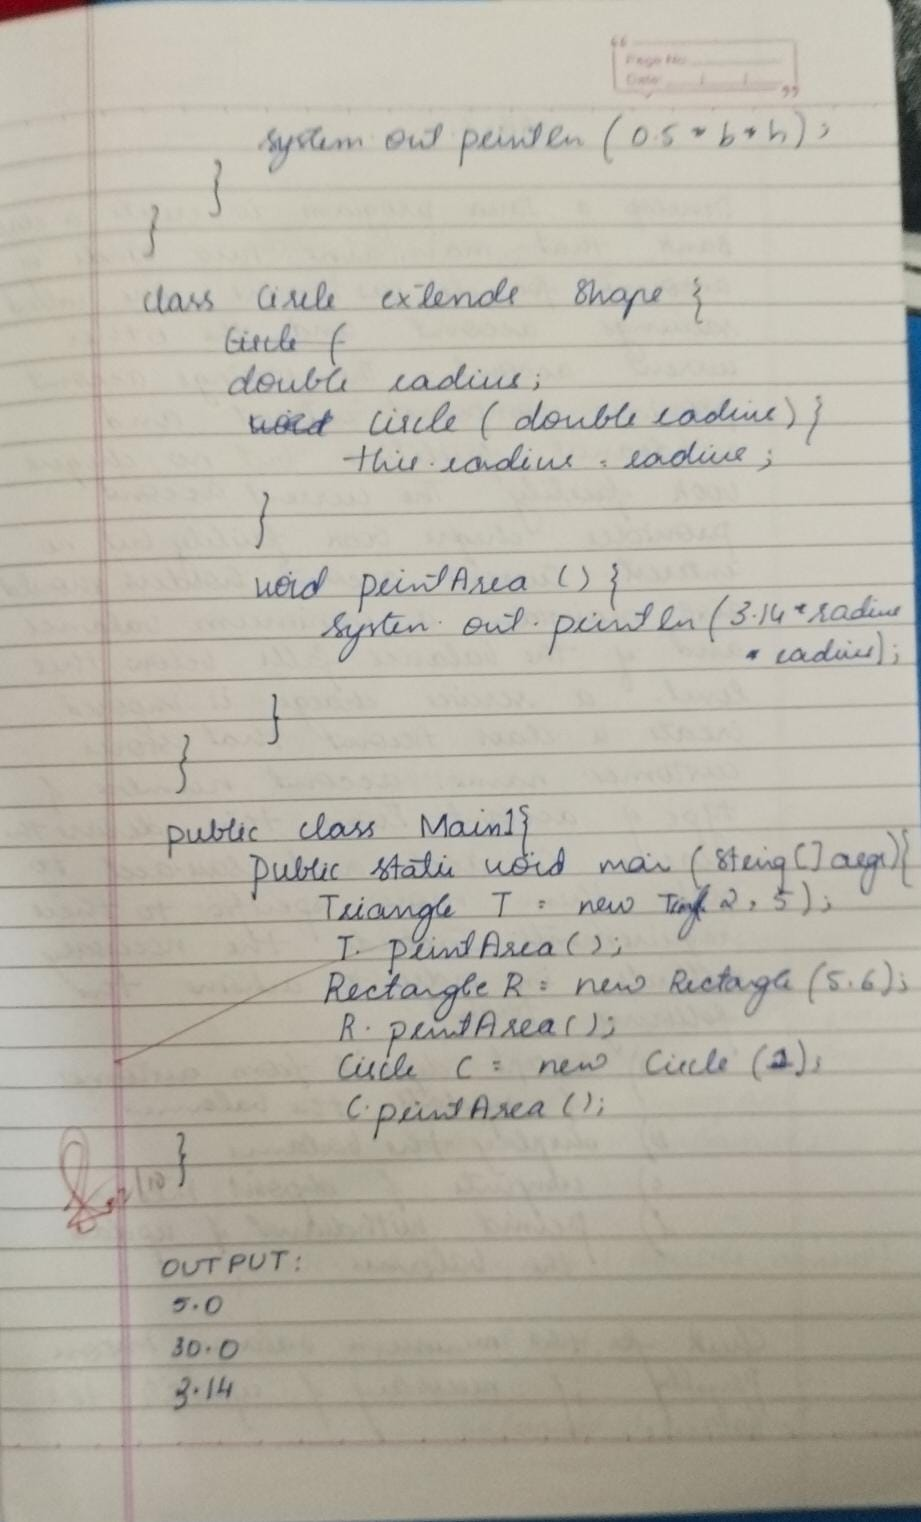 Page No.
Date: / /
System.out println (0.5 * b * h);
}
}
class Circle extends Shape {
Circle (
double radius;
void Circle (double radius) {
this.radius = radius;
}
void printArea () {
System.out.println (3.14 * radius
* radius);
}
}
public class Main1{
public static void main (String [] args){
Triangle T = new 2, 5);
T. printArea ();
Rectangle R = new Rectangle (5.6);
R. printArea ();
Circle C = new Circle (1);
C.printArea ();
}
OUTPUT:
5.0
30.0
3.14